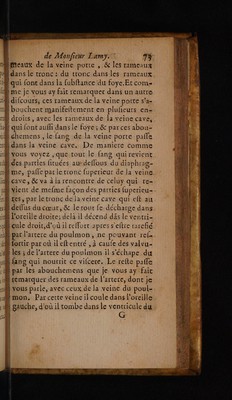 de Monsieur Lamy. 73
meaux de la veine porte, & les rameaux
dans le tronc: du tronc dans les rameaux
qui sont dans la substance du foye. Et com-
me je vous ay fait remarquer dans un autre
discours, ces rameaux de la veine porte s'a-
bouchent manifestement en plusieurs en-
droits, avec les rameaux de la veine cave,
qui sont aussi dans le foye; & par ces abou-
chemens, le sang de la veine porte passe
dans la veine cave. De maniere comme
vous voyez, que tout le sang qui revient
des parties situées au dessous du diaphrag-
me, passe par le tronc superieur de la veine
cave, & va à la rencontre de celuy qui re-
vient de mesme façon des parties superieu-
res, par le tronc de la veine cave qui est au
dessus du cœur, & le tout se décharge dans
l'oreille droite; delà il décend dãs le ventri-
cule droit, d'où il ressort apres s'estre rarefié
par l'artere du poulmon, ne pouvant res-
sortir par où il est entré, à cause des valvu-
les; de l'artere du poulmon il s'échape du
sang qui nourrit ce viscere. Le reste passe
par les abouchemens que je vous ay fait
remarquer des rameaux de l'artere, dont je
vous parle, avec ceux de la veine du poul-
mon. Par cette veine il coule dans l'oreille
gauche, d'où il tombe dans le ventricule du
G